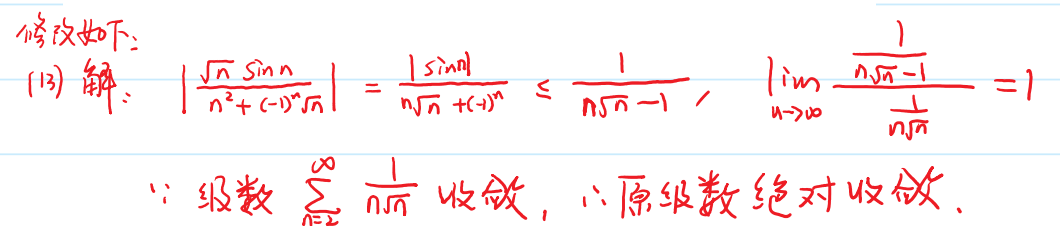 修改如下:
(13) 解: |\frac{\sqrt{n} \sin n}{n^2+(-1)^n\sqrt{n}}| = \frac{|\sin n|}{n\sqrt{n}+(-1)^n} \le \frac{1}{n\sqrt{n}-1}, \lim_{n\to\infty} \frac{\frac{1}{n\sqrt{n}-1}}{\frac{1}{n\sqrt{n}}} = 1
∵ 级数 \sum_{n=2}^{\infty} \frac{1}{n\sqrt{n}} 收敛, ∴ 原级数绝对收敛.